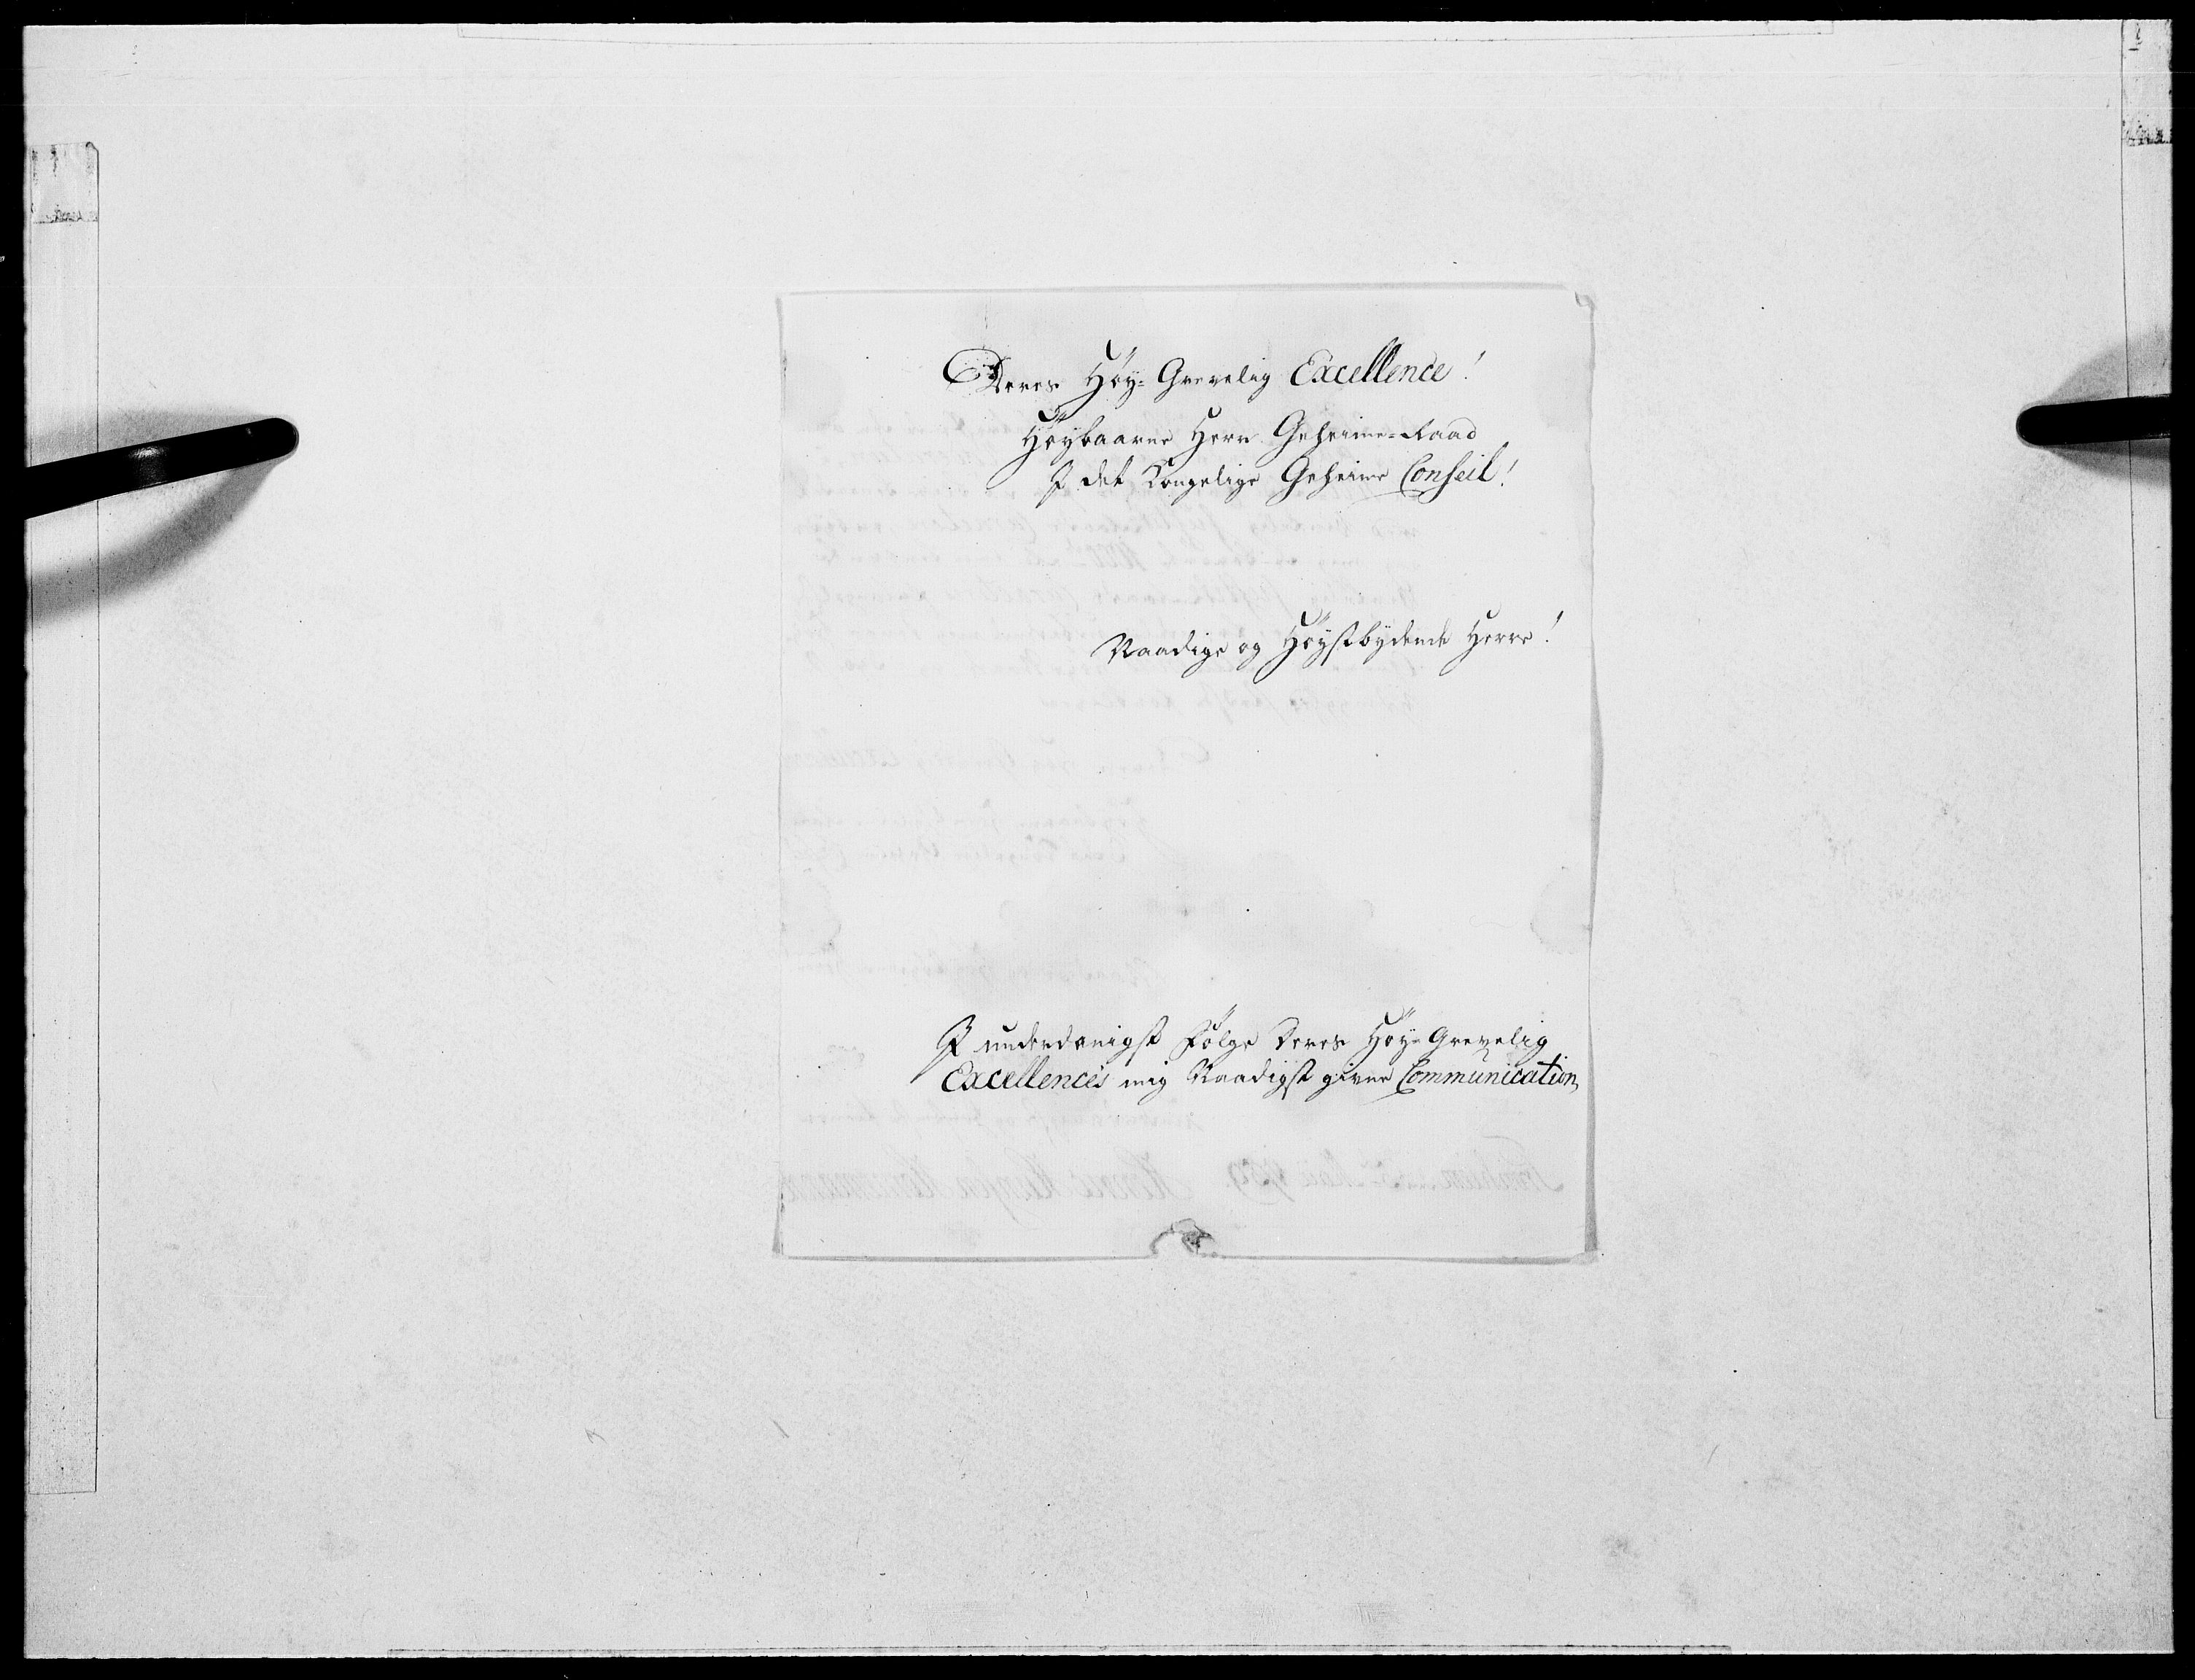 Deres Høy-Grevelig Excellence!
Høybaarne Herr Geheime-Raad
I det Kongelige Geheime Conseil!
Naadige og Høystbydende Herre!
I underdanigst Følge Deres Høy-Grevelig
Excellences mig Naadigst givne Communication,